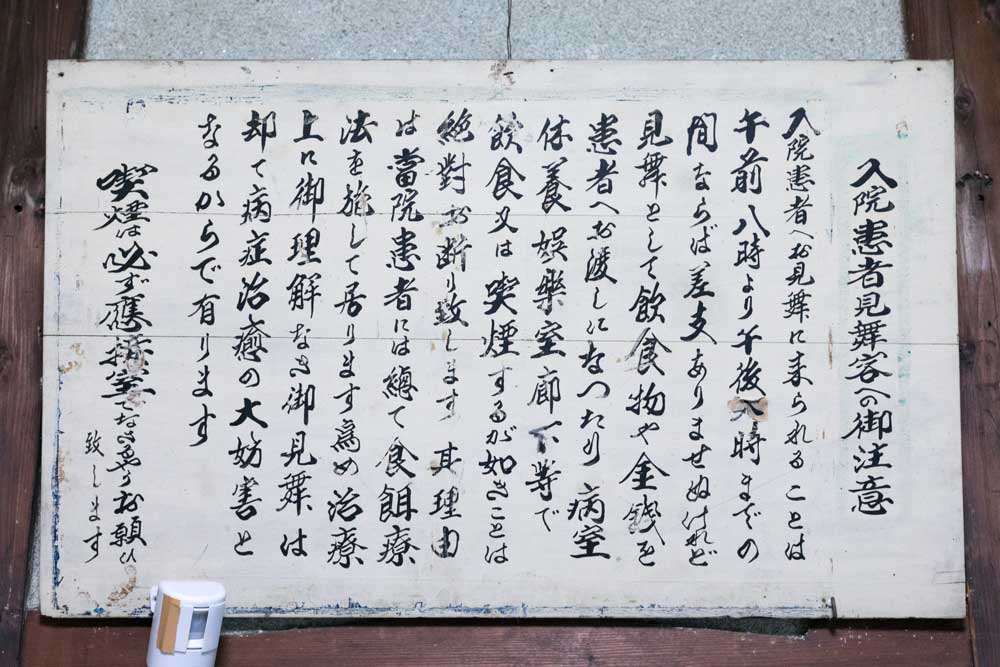 入院患者見舞客への御注意
入院患者へお見舞に来られることは
午前八時より午後六時までの
間ならば差支ありませぬけれど
見舞として飲食物や金銭を
患者へお渡しになつたり病室
休養娯樂室廊下等で
飲食又は喫煙するが如きことは
絶對お断り致します其理由
は當院患者には總て食餌療
法を施して居りますす為め治療
上に御理解なき御見舞は
却て病症治癒の大妨害と
なるからで有ります
喫煙は必ず應接室でなさるやうお願ひ
致します